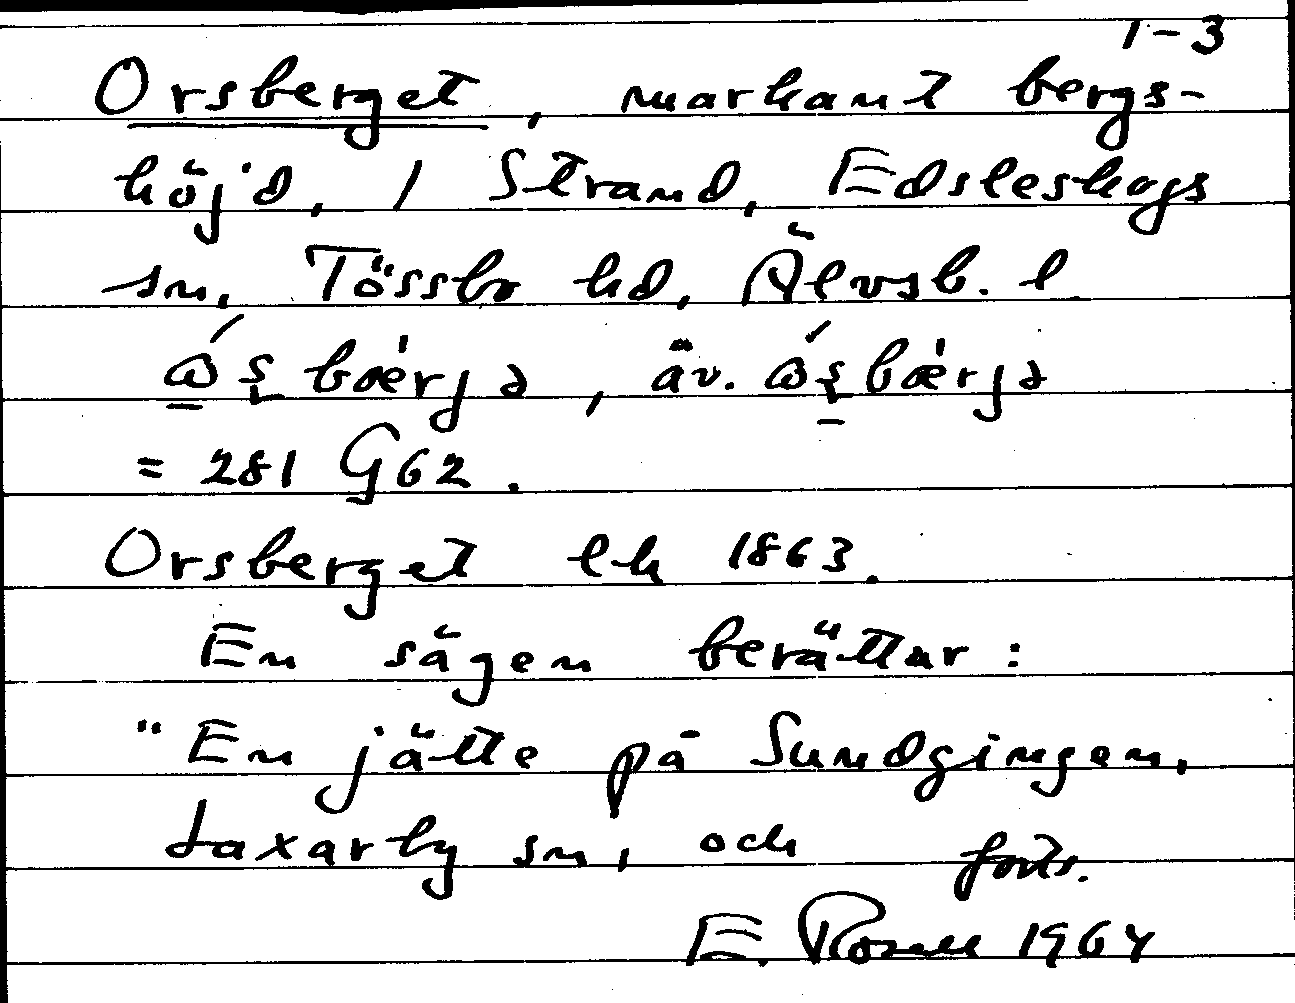 1-3
Orsberget, markant bergs-
höjd, 1 Strand, Edsleskogs
sn, Tössbo hd, Älvsb. l
= 281 G62.
Orsberget ek 1863.
En sägen berättar:
"En jätte på Sundgingen,
Laxarby sn, och forts.
E. Rosell 1964